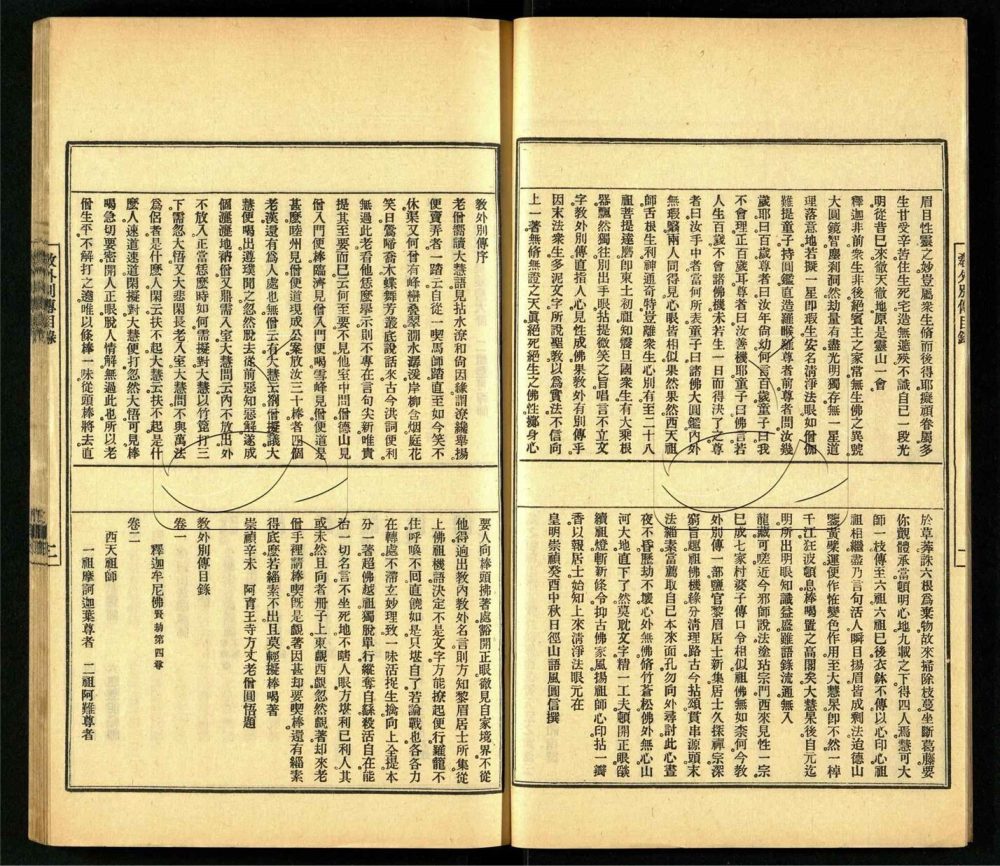 眉目性靈之妙豈屬衆生脩而後得耶癡頑眷屬多
生甘受辛苦住生死宅造無邊殃不識自已一段光
明從昔已來徹天徹地原是靈山一會
釋迦非前衆生非後絕賓主之家常無生佛之異號
大圓鏡智塵剎洞然劫量有盡光明獨存無一星道
理落意地若擬一星即瑕生安名清淨法眼如僧伽
難提童子持圓鑑直造羅睺羅尊者前尊者問汝幾
歲耶曰百歲尊者曰汝年尚幼何言百歲童子曰我
不會理正百歲耳尊者曰汝善機耶童子曰佛言若
人生百歲不會諸佛機未若生一日而得決了之尊
者曰汝手中者當何所表童子曰諸佛大圓鑑內外
無瑕翳兩人同得見心眼皆相似果然果然西天祖
師舌根生利神通奇特豈離衆生心別有至二十八
祖菩提達磨即東土初祖知震旦國衆生有大乘根
器飄然獨往別出手眼拈提微笑之旨唱言不立文
字教外別傳直指人心見性成佛果教外有別傳乎
因末法衆生多泥文字所說聖教以爲實法不信向
上一著無脩無證之天眞絕死絕生之佛性擲身心
於草莽誅六根爲棄物故來補除枝蔓坐斷葛藤要
你觀體承當頓明心地九載之下得四人焉慧可大
師一枝傳至六祖六祖已後衣鉢不傳以心印心祖
祖相繼盡乃言句活人瞬目揚眉皆成剩法迨德山
鑒黃檗運便作怪變色作用至大慧杲即不然一棹
千江狂波頓息棒喝置之高閣矣大慧杲後自元迄
明所出明眼知識益盛雖語錄流通無入
龍藏可嗟近今邪師說法塗玷宗門西來見性一宗
已成七家村婆子傳口令相似祖佛無如柰何今教
外別傳一部鹽官黎眉居士新集居士久探禪宗深
窮旨趣祖佛機緣分清理路古今拈頌貫串源頭末
法緇素當薦取自已本來面孔勿向外尋討此心晝
夜不昏歷劫不壞心外無佛脩竹蒼松佛外無心山
河大地直下了然莫耽文字精一工夫頓開正眼燄
續祖燈斬新條令抑古佛家風揚祖師心印拈一瓣
香以報居士始知上來清淨法眼元在
皇明崇禎癸酉中秋日徑山語風圓信撰
教外別傳序
老僧嘗讀大慧語見拈水潦和尚因緣謂潦纔舉揚
便賣弄者一踏云自從一喫馬師踏直至如今笑不
休渠又何曾有峰巒疊翠澗水潺湲岸柳含烟庭花
笑日鶯啼喬木蝶舞芳叢底說話來古今洪詞便利
無過此老看他恁麼舉示則不專在言句尖新唯貴
提其至要而已云何至要不見他室中問僧德山見
僧入門便棒臨濟見僧入門便喝雪峰見僧便道是
甚麼睦州見僧便道現成公案放汝三十棒者四個
老漢還有爲人處也無僧云有大慧云劄僧擬議大
慧便喝出遵璞聞之忽然脫去從前惡知惡解遂成
個灑灑地衲僧又鼎需入室大慧問云內不放出外
不放入正當恁麼時如何需擬對大慧以竹篦打三
下需忽大悟又大悲閑長老入室大慧問不與萬法
爲侶者是什麼人閑云扶不起大慧云扶不起是什
麼人速道速道閑擬對大慧便打忽然大悟可見棒
喝急切要密開人正眼脫人情解無過此也所以老
僧生平不解打之遶唯以條棒一味從頭棒將去直
要人向棒頭拂著處豁開正眼徹見自家境界不從
他得逈出教內教外名言則方知黎眉居士所集從
上佛祖機語決定不是文字方能撩起便行羅籠不
住呼喚不回直饒如是只堪自了若論戰也各各力
在轉處不滯立妙理致一味活捉生擒向上全提本
分一著超佛越祖獨脫單行縱奪自繇殺活自在能
治一切名言不坐死地不瞎人眼方堪利已利人其
或未然且向者冊子上東觀西覷忽然覷著却來老
僧手裡請棒喫既是覷著因甚却要喫棒還有緇素
得底麼若緇素不出且莫輕擬棒喝著
崇禎辛未 阿育王寺方丈老僧圓悟題
教外別傳目錄
卷一
釋迦牟尼佛賢劫第四尊
卷二
西天祖師
一祖摩訶迦葉尊者 二祖阿難尊者
教外別傳目錄